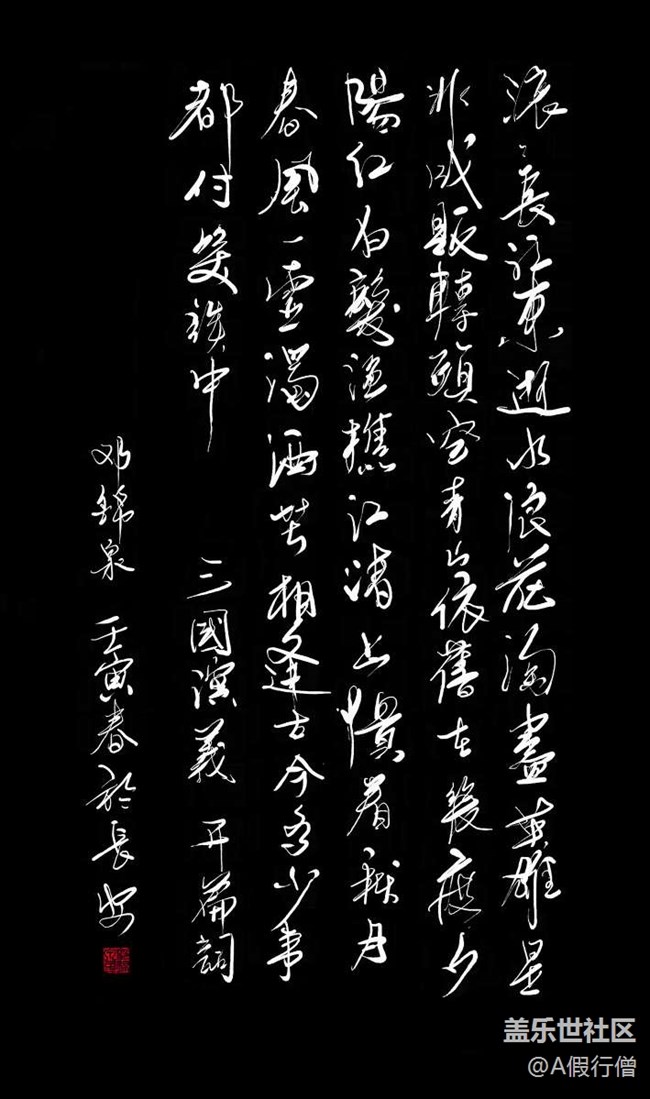 滚々長江東逝水浪花淘盡英雄是
非成敗轉頭空青山依舊在幾度夕
陽红白髮漁樵江渚上慣看秋月
春風一壺濁酒喜相逢古今多少事
都付笑談中 三國演義 开篇詞
邓錦泉 壬寅春於長安
盖乐世社区
@A假行僧